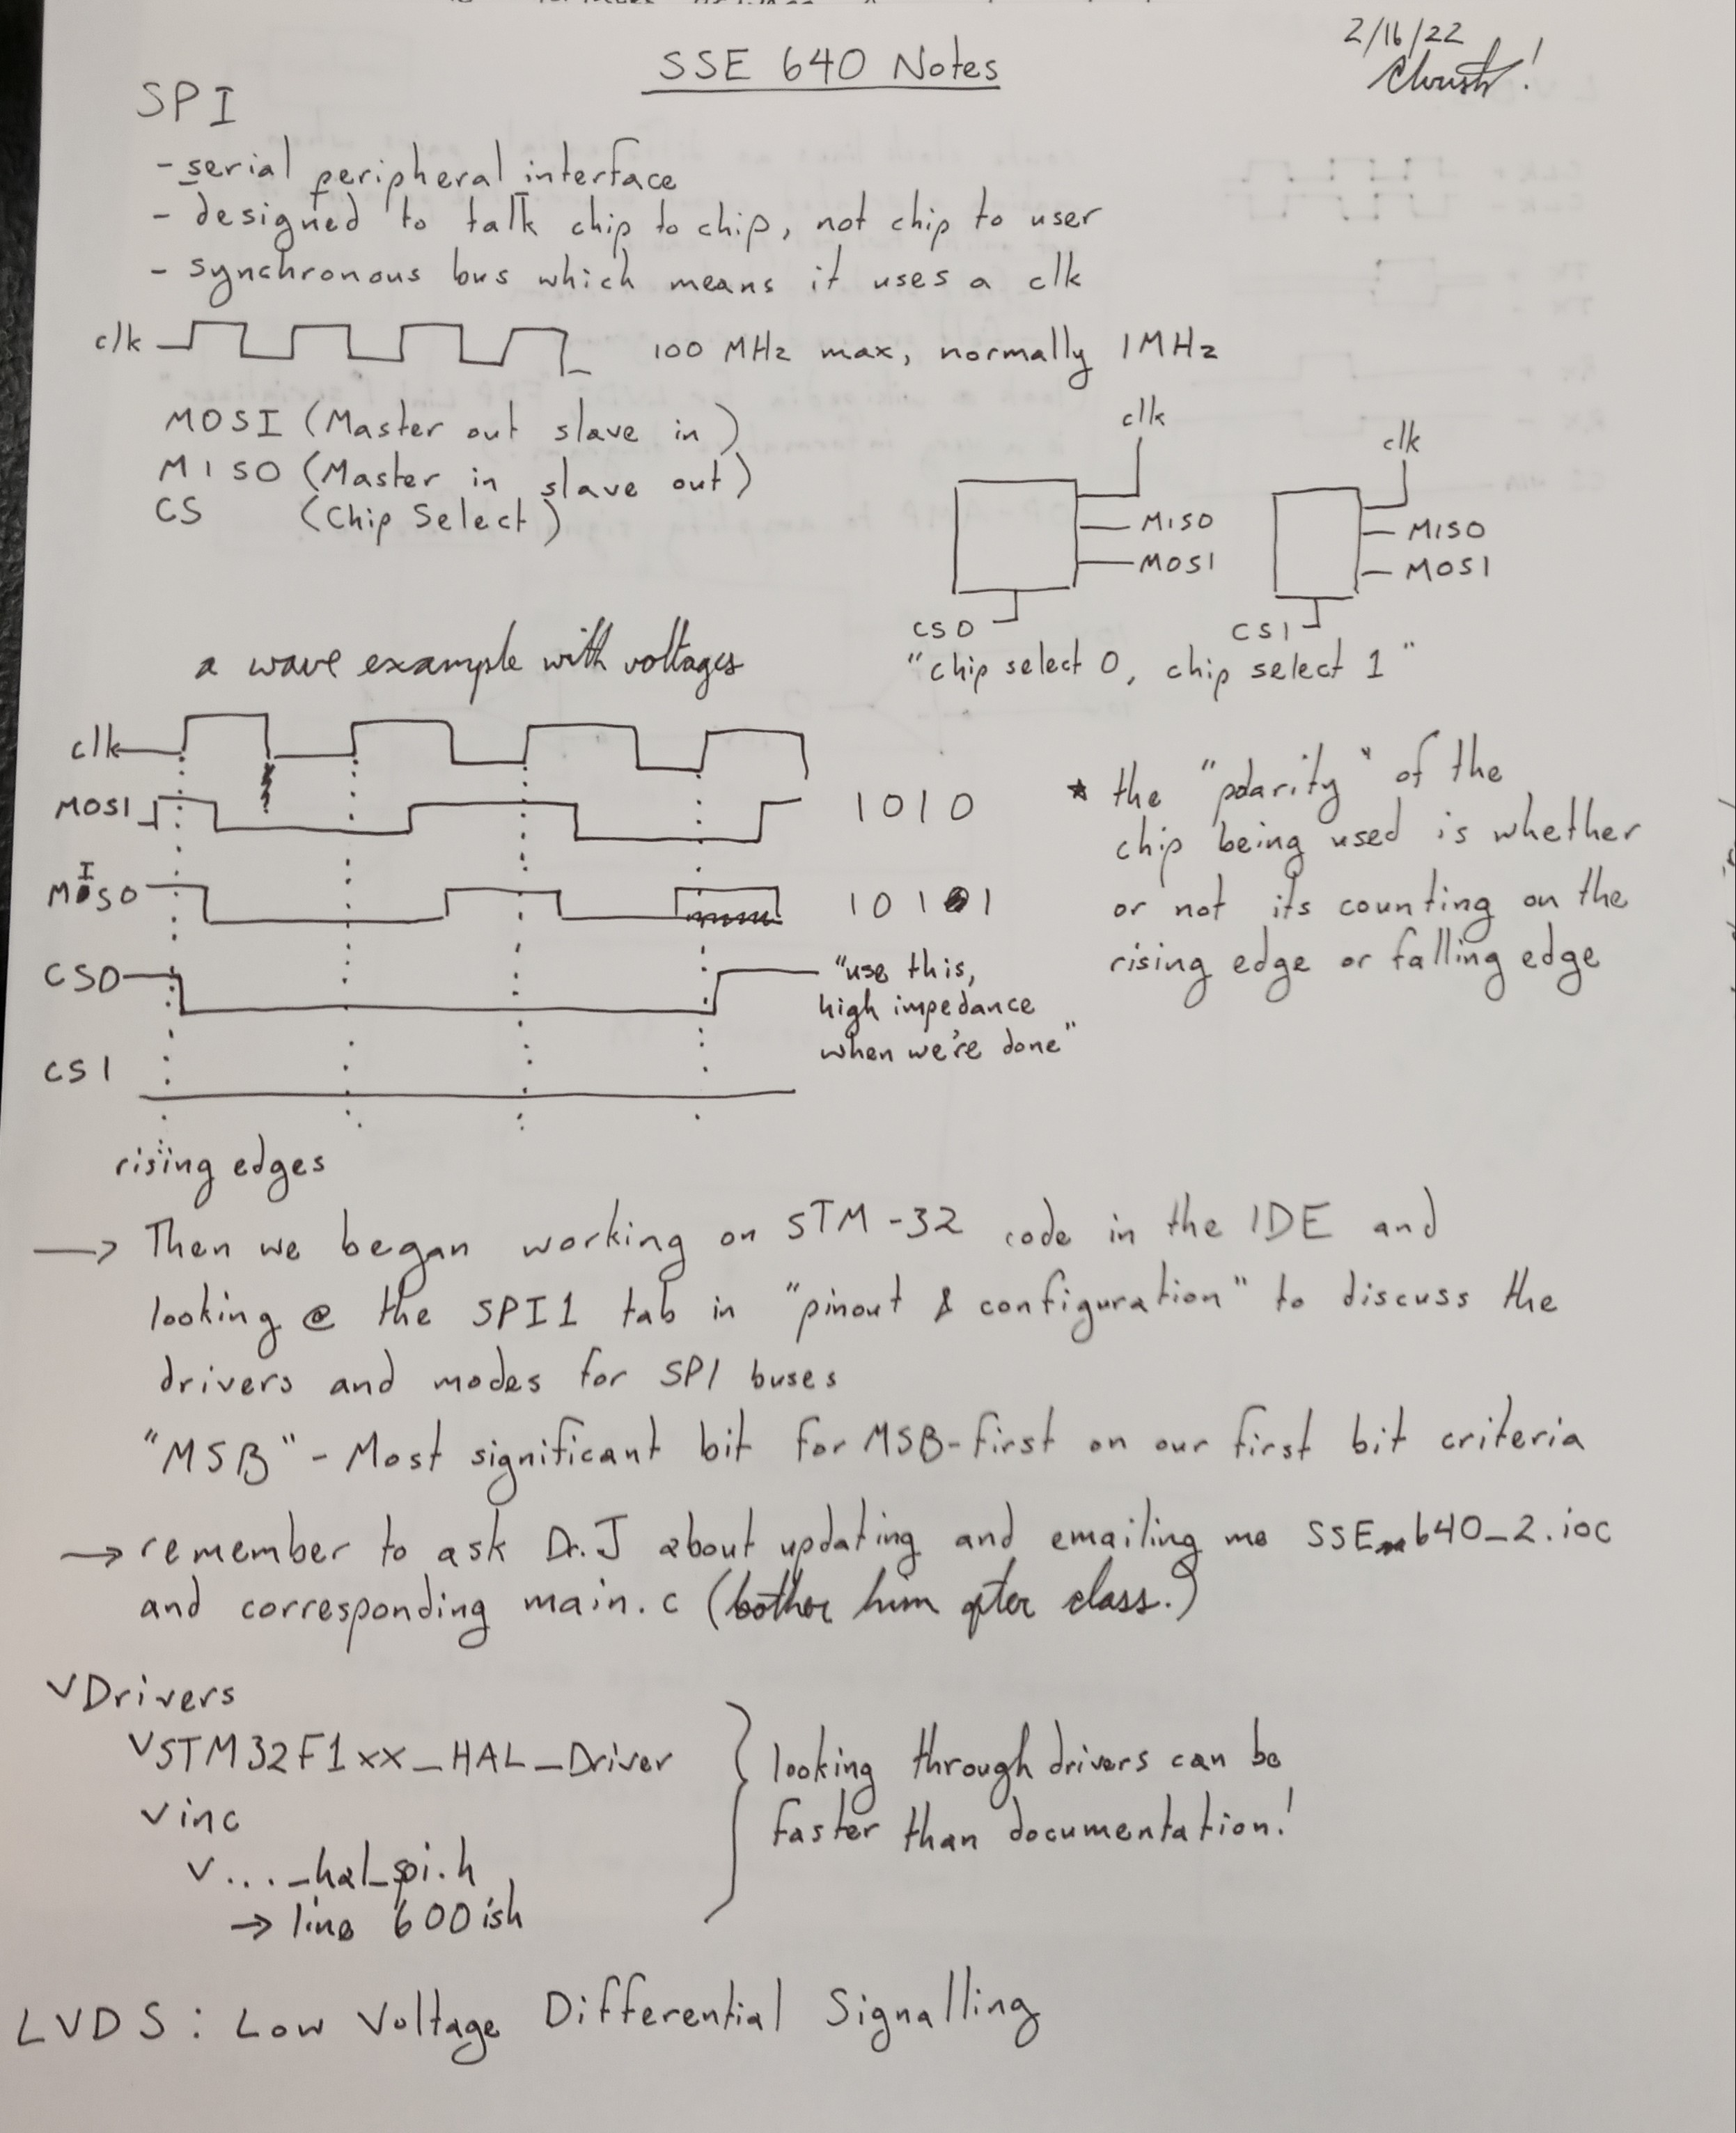 SSE 640 Notes
2/16/22
SPI
- serial peripheral interface
- designed to talk chip to chip, not chip to user
- synchronous bus which means it uses a clk
clk
100 MHz max, normally 1MHz
MOSI (Master out slave in)
MISO (Master in slave out)
CS (Chip Select)
clk
MISO
MOSI
CS0
clk
MISO
MOSI
CS1
"chip select 0, chip select 1"
a wave example with voltages
clk
MOSI
1010
MISO
1011
CS0
"use this,
high impedance
when we're done"
CS1
rising edges
* the "polarity" of the
chip being used is whether
or not its counting on the
rising edge or falling edge
→ Then we began working on STM-32 code in the IDE and
looking @ the SPI1 tab in "pinout & configuration" to discuss the
drivers and modes for SPI buses
"MSB" - Most significant bit for MSB-first on our first bit criteria
→ remember to ask Dr. J about updating and emailing me SSE_640_2.ioc
and corresponding main.c (bother him after class.)
v Drivers
v STM32F1xx_HAL_Driver
v inc
v ..._hal_spi.h
→ line 600ish
looking through drivers can be
faster than documentation!
LVDS: Low Voltage Differential Signalling